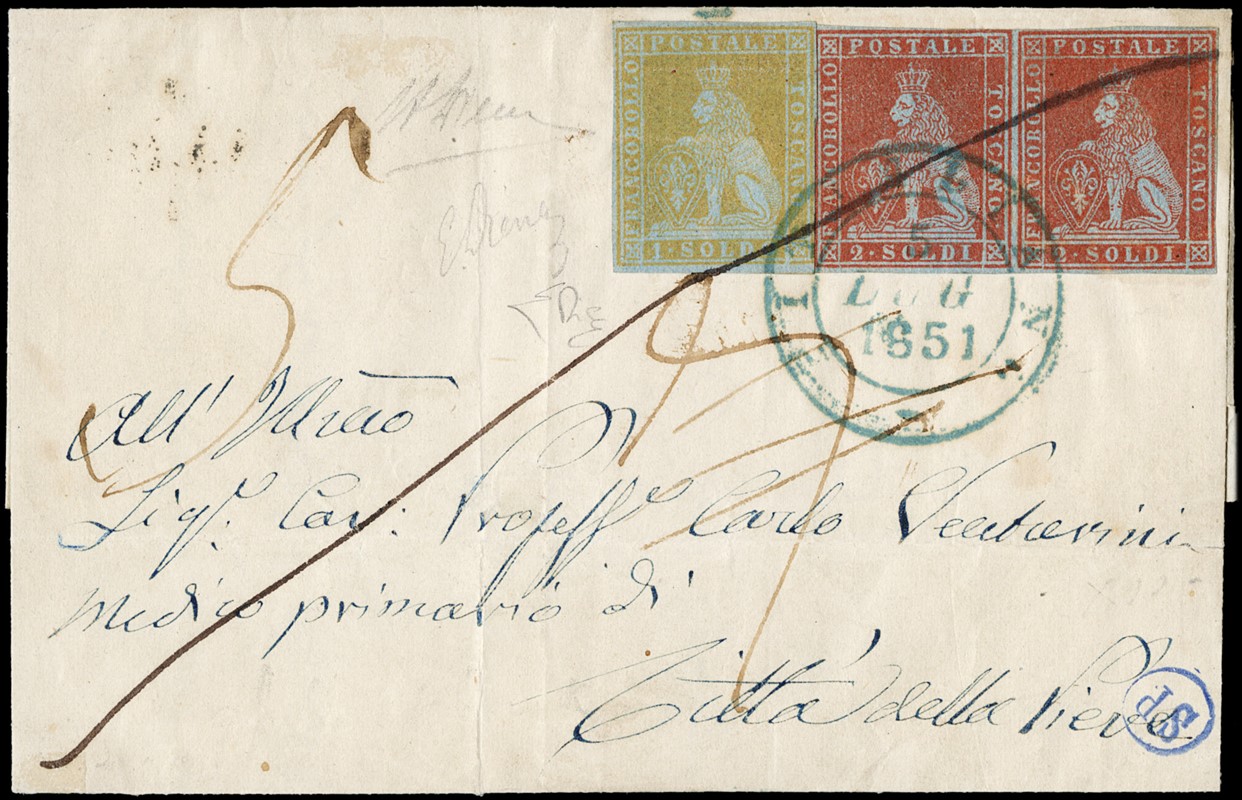 POSTALE
FRANCOBOLLO
TOSCANO
1 · SOLDO
POSTALE
FRANCOBOLLO
TOSCANO
2 · SOLDI
POSTALE
FRANCOBOLLO
TOSCANO
2 · SOLDI
5
LUG
1851
E. Diena
5
All'
Sigr. Cav: Profess
Carlo
medico primario di
Città della Pieve
SP